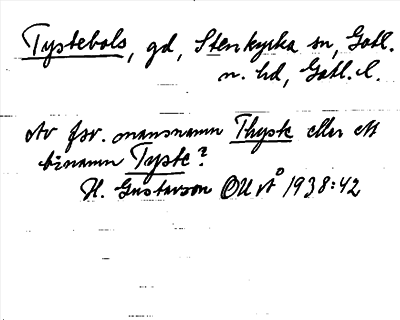 Tystebols, gd, Stenkyrka sn, Gotl.
n. hd, Gotl. l.
Av fsv. mansnamn Thyste eller ett
binamn Tyste?
H. Gustavson OUÅ 1938:42